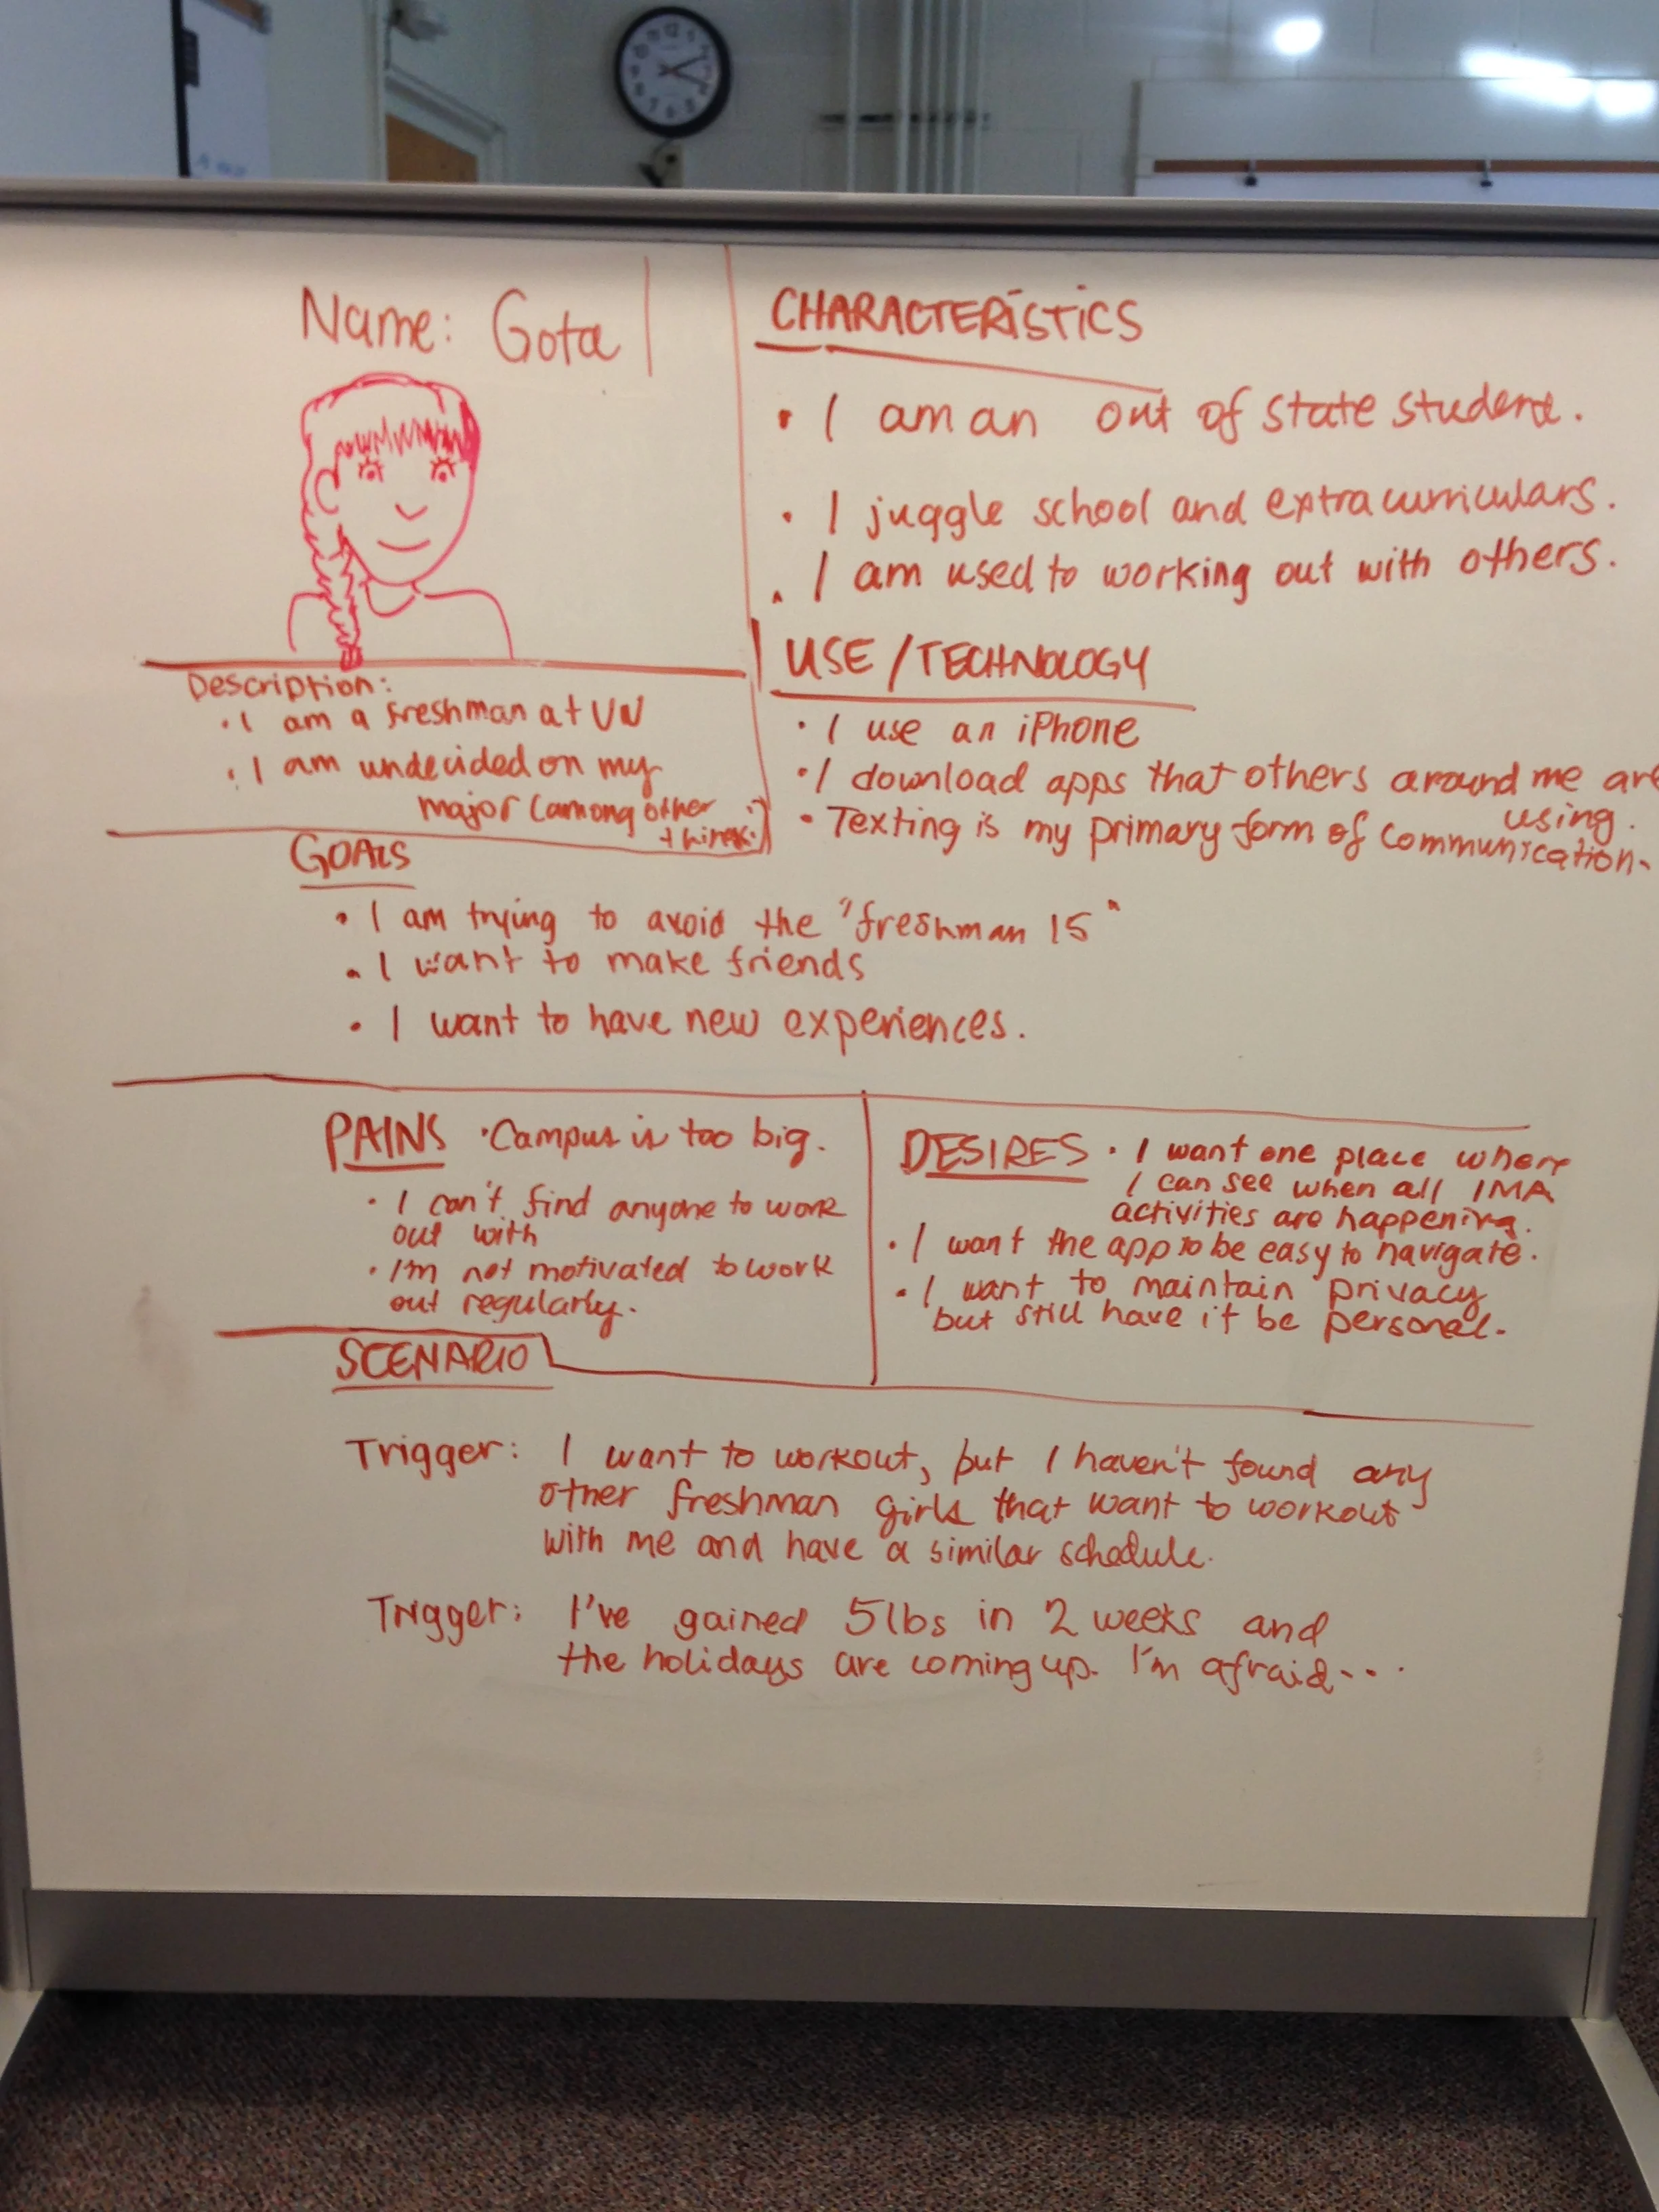 Name: Gota
Description:
• I am a freshman at UW
• I am undecided on my
major (among other
things.)
CHARACTERISTICS
• I am an out of state student.
• I juggle school and extracurriculars.
• I am used to working out with others.
USE / TECHNOLOGY
• I use an iPhone
• I download apps that others around me are
using.
• Texting is my primary form of communication.
GOALS
• I am trying to avoid the "freshman 15"
• I want to make friends
• I want to have new experiences.
PAINS • Campus is too big.
• I can't find anyone to work
out with
• I'm not motivated to work
out regularly.
DESIRES • I want one place where
I can see when all IMA
activities are happening.
• I want the app to be easy to navigate.
• I want to maintain privacy
but still have it be personal.
SCENARIO
Trigger: I want to workout, but I haven't found any
other freshman girls that want to workout
with me and have a similar schedule.
Trigger: I've gained 5lbs in 2 weeks and
the holidays are coming up. I'm afraid...